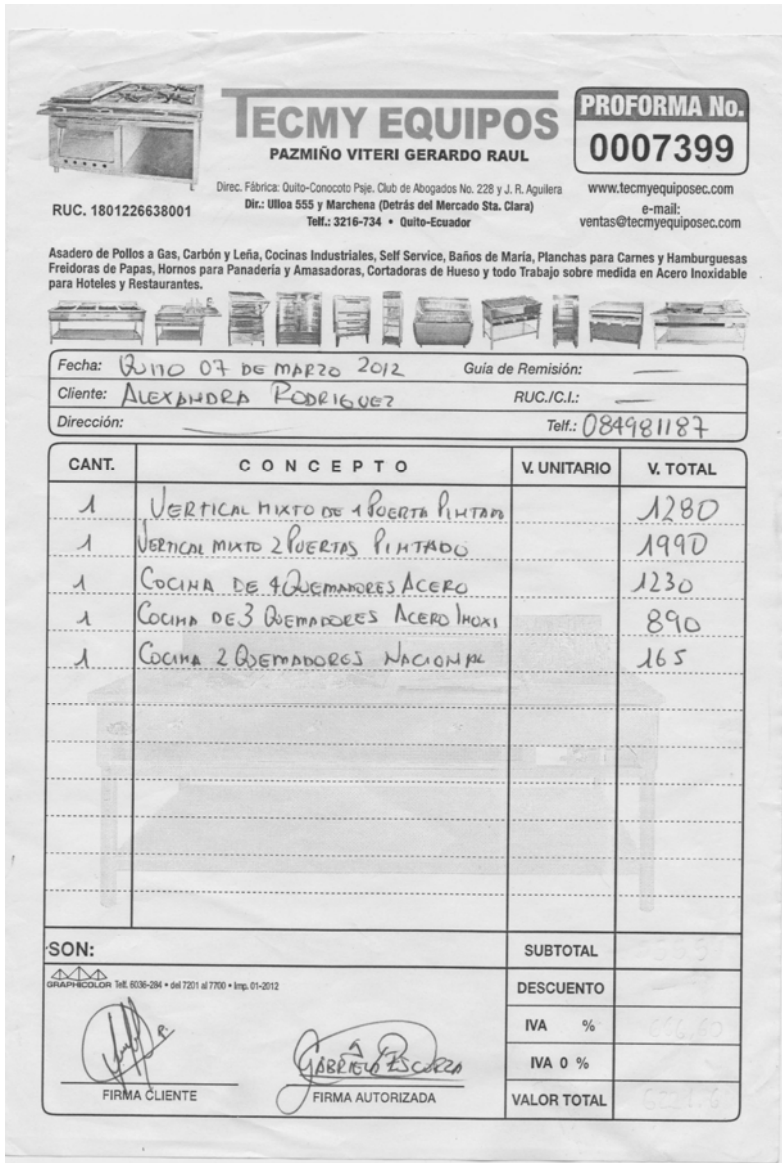 TECMY EQUIPOS
PAZMIÑO VITERI GERARDO RAUL
PROFORMA No.
0007399
RUC. 1801226638001
Direc. Fábrica: Quito-Conocoto Psje. Club de Abogados No. 228 y J. R. Aguilera
Dir.: Ulloa 555 y Marchena (Detrás del Mercado Sta. Clara)
Telf.: 3216-734 • Quito-Ecuador
www.tecmyequiposec.com
e-mail:
ventas@tecmyequiposec.com
Asadero de Pollos a Gas, Carbón y Leña, Cocinas Industriales, Self Service, Baños de María, Planchas para Carnes y Hamburguesas
Freidoras de Papas, Hornos para Panadería y Amasadoras, Cortadoras de Hueso y todo Trabajo sobre medida en Acero Inoxidable
para Hoteles y Restaurantes.
Fecha: QUITO 07 DE MARZO 2012 Guía de Remisión: —
Cliente: ALEXANDRA RODRIGUEZ RUC./C.I.: —
Dirección: — Telf.: 084981187
CANT. CONCEPTO V. UNITARIO V. TOTAL
1 VERTICAL MIXTO DE 1 PUERTA PINTADO 1280
1 VERTICAL MIXTO 2 PUERTAS PINTADO 1990
1 COCINA DE 4 QUEMADORES ACERO 1230
1 COCINA DE 3 QUEMADORES ACERO INOXI 890
1 COCINA 2 QUEMADORES NACIONAL 165
SON: SUBTOTAL
GRAPHICOLOR Telf. 6036-284 • del 7201 al 7700 • Imp. 01-2012
DESCUENTO
IVA %
IVA 0 %
VALOR TOTAL
GABRIELA ESCORZA
FIRMA CLIENTE FIRMA AUTORIZADA